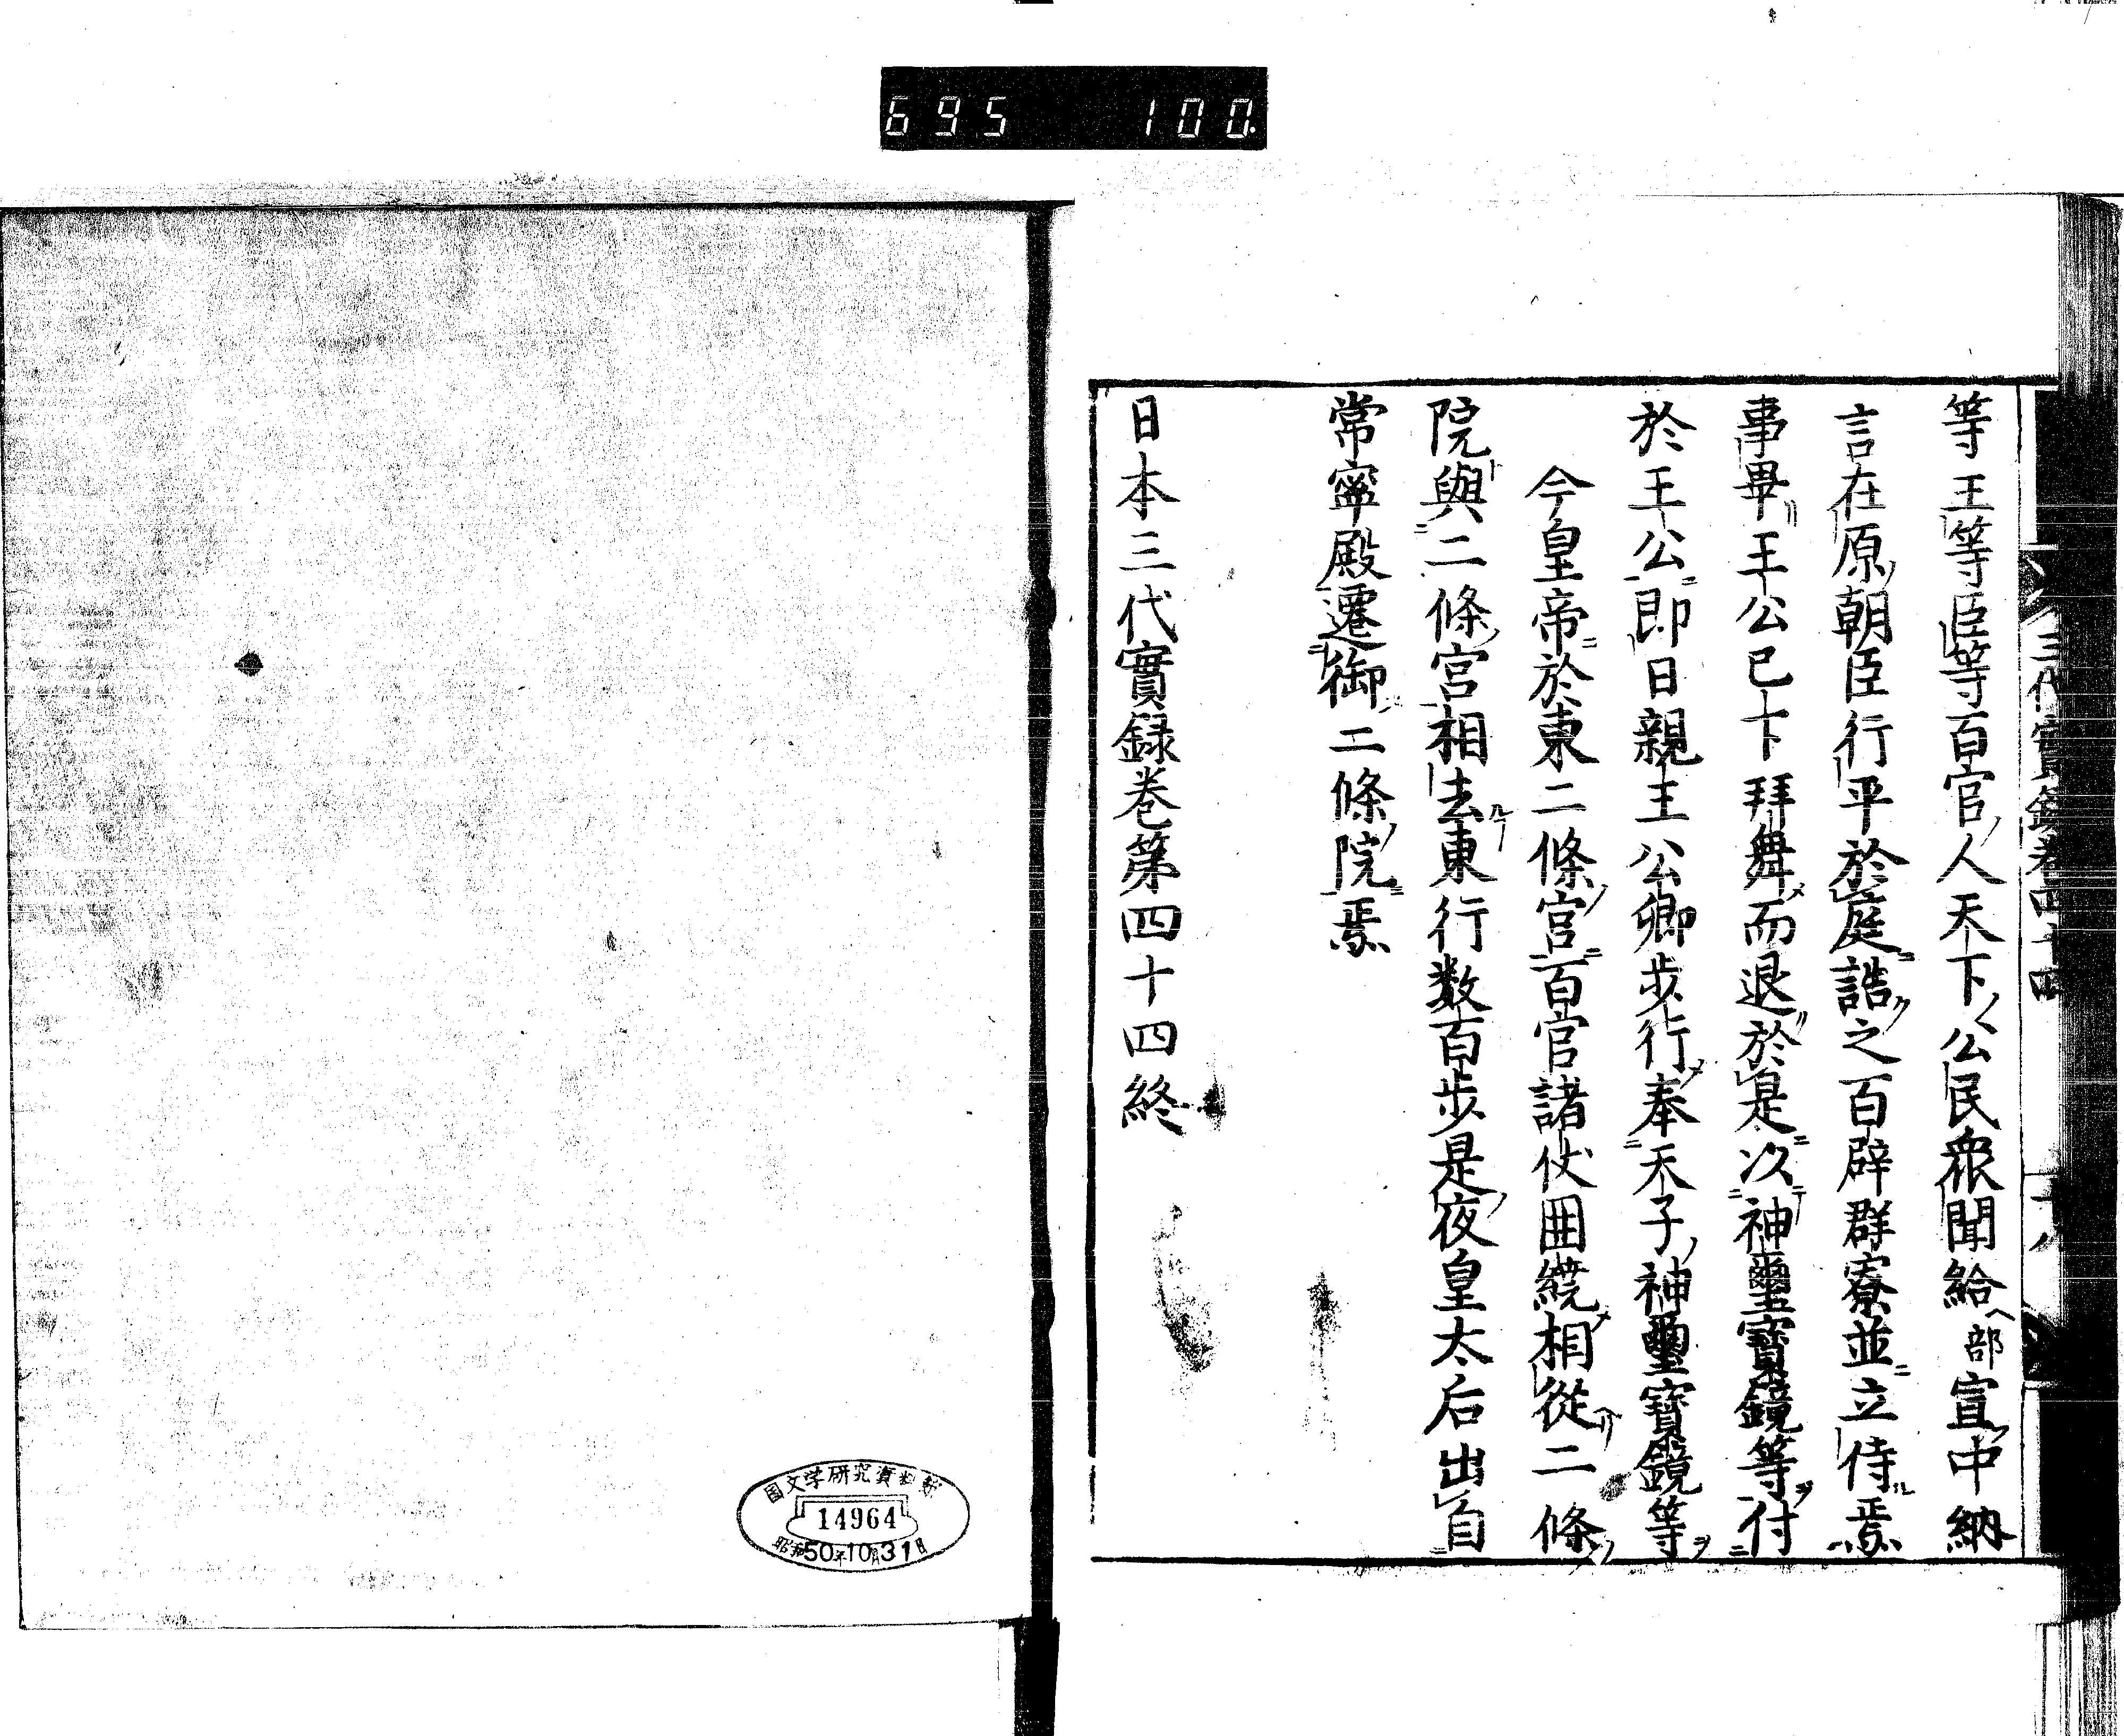 695 100.
三代實錄卷四十四
十八
等王等臣等百官人天下公民衆聞給部宣中納
言在原朝臣行平於庭誥之百辟群寮並立侍焉
事畢王公已下拜舞而退於是以神璽寶鏡等付
於王公即日親王公卿歩行奉天子神璽寶鏡等
今皇帝於東二條宮百官諸仗囲繞相從二條
院與二條宮相去東行数百歩是夜皇太后出自
常寧殿遷御二條院焉
日本三代實録巻第四十四終
國文学研究資料館
14964
昭和50年10月31日